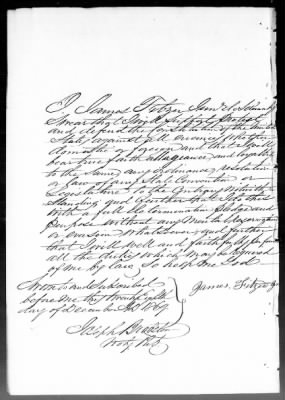 I James Fitzer do solemnly
Swear that I will Support protect
and defend the Constitution of the United
States against all enemies whether
domestic or foreign and that I will
bear true faith allegiance and loyalty
to the same any ordinance resolution
or law of any State Convention or
Legislature to the Contrary Notwith
Standing and further that I do this
With a full determination pledge and
purpose without any Mental reservation
or evasion Whatsoever and further
that I will well and faithfully perform
all the duties which may be required
of me by law So help me God
Sworn to and Subscribed
before me this
day of December AD 1869
James. Fitzer
Joseph